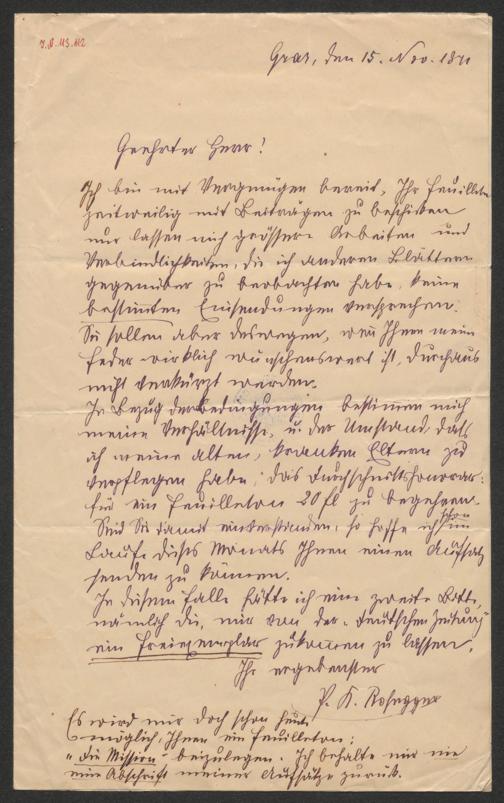 I. N. 113.112
Graz, den 15. Nov. 1871
Geehrter Herr!
Ich bin mit Vergnügen bereit, Ihr Feuilleton
zeitweilig mit Beiträgen zu beschicken
nur lassen mich grössere Arbeiten und
Verbindlichkeiten, die ich anderen Blättern
gegenüber zu beobachten habe, keine
bestimten Einsendungen versprechen.
Sie sollen aber deswegen, wen Ihnen meine
Feder wirklich wünschenswert ist, durchaus
nicht verkürzt werden.
In Bezug der Bedingungen bestimen mich
meine Verhältnisse, u. der Umstand, dass
ich meine alten, kranken Eltern zu
verpflegen habe, das Durchschnittshonorar
für ein Feuilleton 20 fl zu begehren.
Sind Sie damit einverstanden, so hoffe ich schon im
Laufe dieses Monats Ihnen einen Aufsatz
senden zu können.
In diesem Falle hätte ich eine zweite Bitte,
nämlich die, mir von der „Deutschen Zeitung"
ein Freiexemplar zukomen zu lassen.
Ihr ergebenster
P. K. Rosegger
Es wird mir doch schon heute
möglich, Ihnen ein Feuilleton:
„Die Mission" beizulegen. Ich behalte mir nie
eine Abschrift meiner Aufsätze zurück.